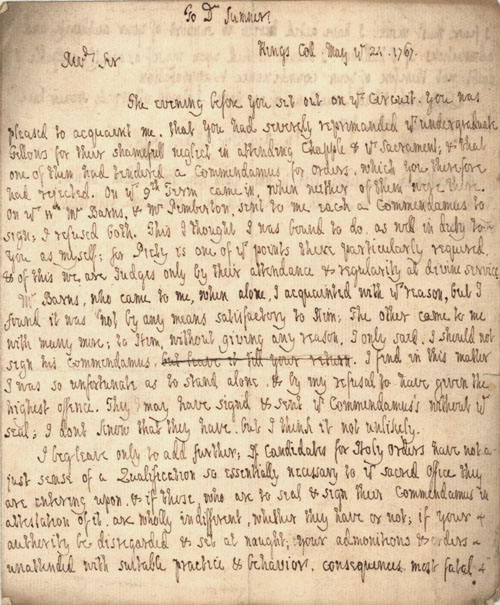 To Dr Sumner.
Kings Coll. May ye 21. 1767.
Revd. Sir
The evening before you set out on ye Circuit. You was
pleased to acquaint me. that You had severely reprimanded ye undergraduate
Fellows for their shamefull neglect in attending Chapple & ye Sacrament; & that
one of them had tendered a Commendamus for orders, which you therefore
had rejected. On ye 9th Term came in, when neither of them were there.
On ye 11th Mr Barns, & Mr Pemberton, sent to me each a Commendamus to
sign; I refused both. This I thought I was bound to do, as well in duty to
You as myself; for Piety is one of ye points there particularly required.
& of this we are Judges only by their attendance & regularity at divine service.
Mr Barns, who came to me, when alone, I acquainted with ye reason, but I
found it was not by any means satisfactory to Him; The other came to me
with many more; to Him, without giving any reason, I only said, I should not
sign his Commendamus. but leave it till your return. I find in this matter
I was so unfortunate as to stand alone, & by my refusal to have given the
highest offence. They may have signed & sent ye Commendamus's without ye
seal; I dont know that they have, but I think it not unlikely.
I beg leave only to add further; If Candidates for Holy Orders have not a
just sense of a Qualification so essentially necessary to ye sacred Office they
are entering upon, & if those, who are to seal & sign their Commendamus in
attestation of it, are wholly indifferent, whether they have or not; if your
authority be disregarded & set at naught; your admonitions & orders
unattended with suitable practice & behavior. consequences most fatal